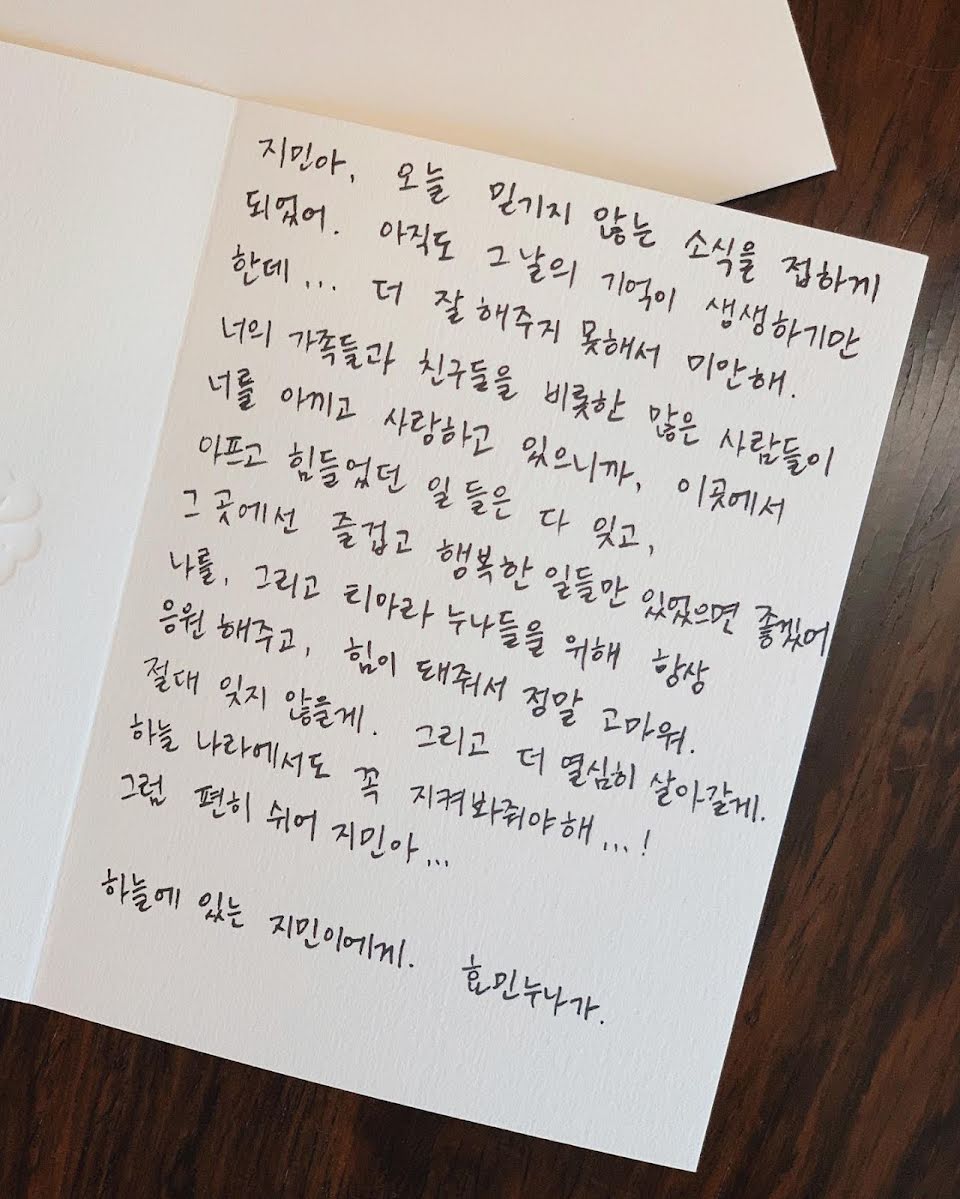 지민아, 오늘 믿기지 않는 소식을 접하게
되었어. 아직도 그날의 기억이 생생하기만
한데... 더 잘해주지 못해서 미안해.
너의 가족들과 친구들을 비롯한 많은 사람들이
너를 아끼고 사랑하고 있으니까, 이곳에서
아프고 힘들었던 일들은 다 잊고,
그곳에선 즐겁고 행복한 일들만 있었으면 좋겠어
나를, 그리고 티아라 누나들을 위해 항상
응원해주고, 힘이 돼줘서 정말 고마워.
절대 잊지 않을게. 그리고 더 열심히 살아갈게.
하늘 나라에서도 꼭 지켜봐줘야해...!
그럼 편히 쉬어 지민아...
하늘에 있는 지민이에게. 효민누나가.